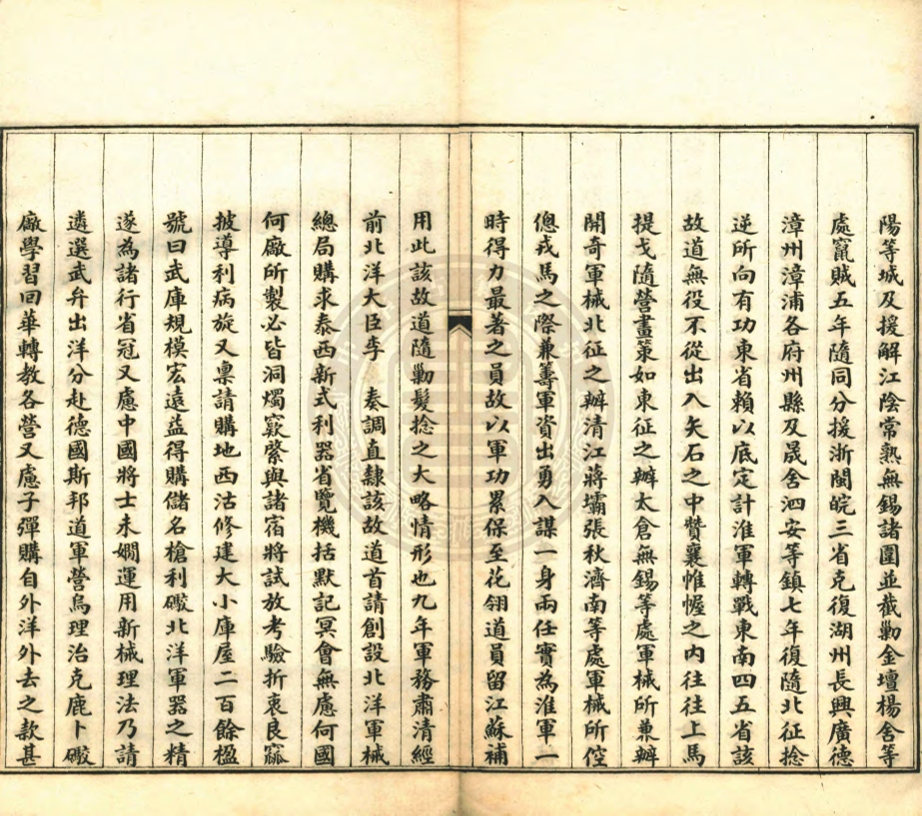 陽等城及援解江陰常熟無錫諸圍並截勦金壇楊舍等
處竄賊五年隨同分援浙閩皖三省克復湖州長興廣德
漳州漳浦各府州縣及晟舍泗安等鎮七年復隨北征捻
逆所向有功東省賴以底定計淮軍轉戰東南四五省該
故道無役不從出入矢石之中贊襄帷幄之內往往上馬
提戈隨營畫策如東征之辦太倉無錫等處軍械所兼辦
開奇軍械北征之辦清江蔣壩張秋濟南等處軍械所倥
傯戎馬之際兼籌軍資出勇入謀一身兩任實為淮軍一
時得力最著之員故以軍功累保至花翎道員留江蘇補
用此該故道隨勦髮捻之大略情形也九年軍務肅清經
前北洋大臣李　奏調直隸該故道首請創設北洋軍械
總局購求泰西新式利器省覽機括默記冥會無慮何國
何廠所製必皆洞燭窾綮與諸宿將試放考驗折衷良窳
披導利病旋又稟請購地西沽修建大小庫屋二百餘楹
號曰武庫規模宏遠益得購儲名槍利礮北洋軍器之精
遂為諸行省冠又慮中國將士未嫺運用新械理法乃請
遴選武弁出洋分赴德國斯邦道軍營烏理治克鹿卜礮
廠學習回華轉教各營又慮子彈購自外洋外去之款甚